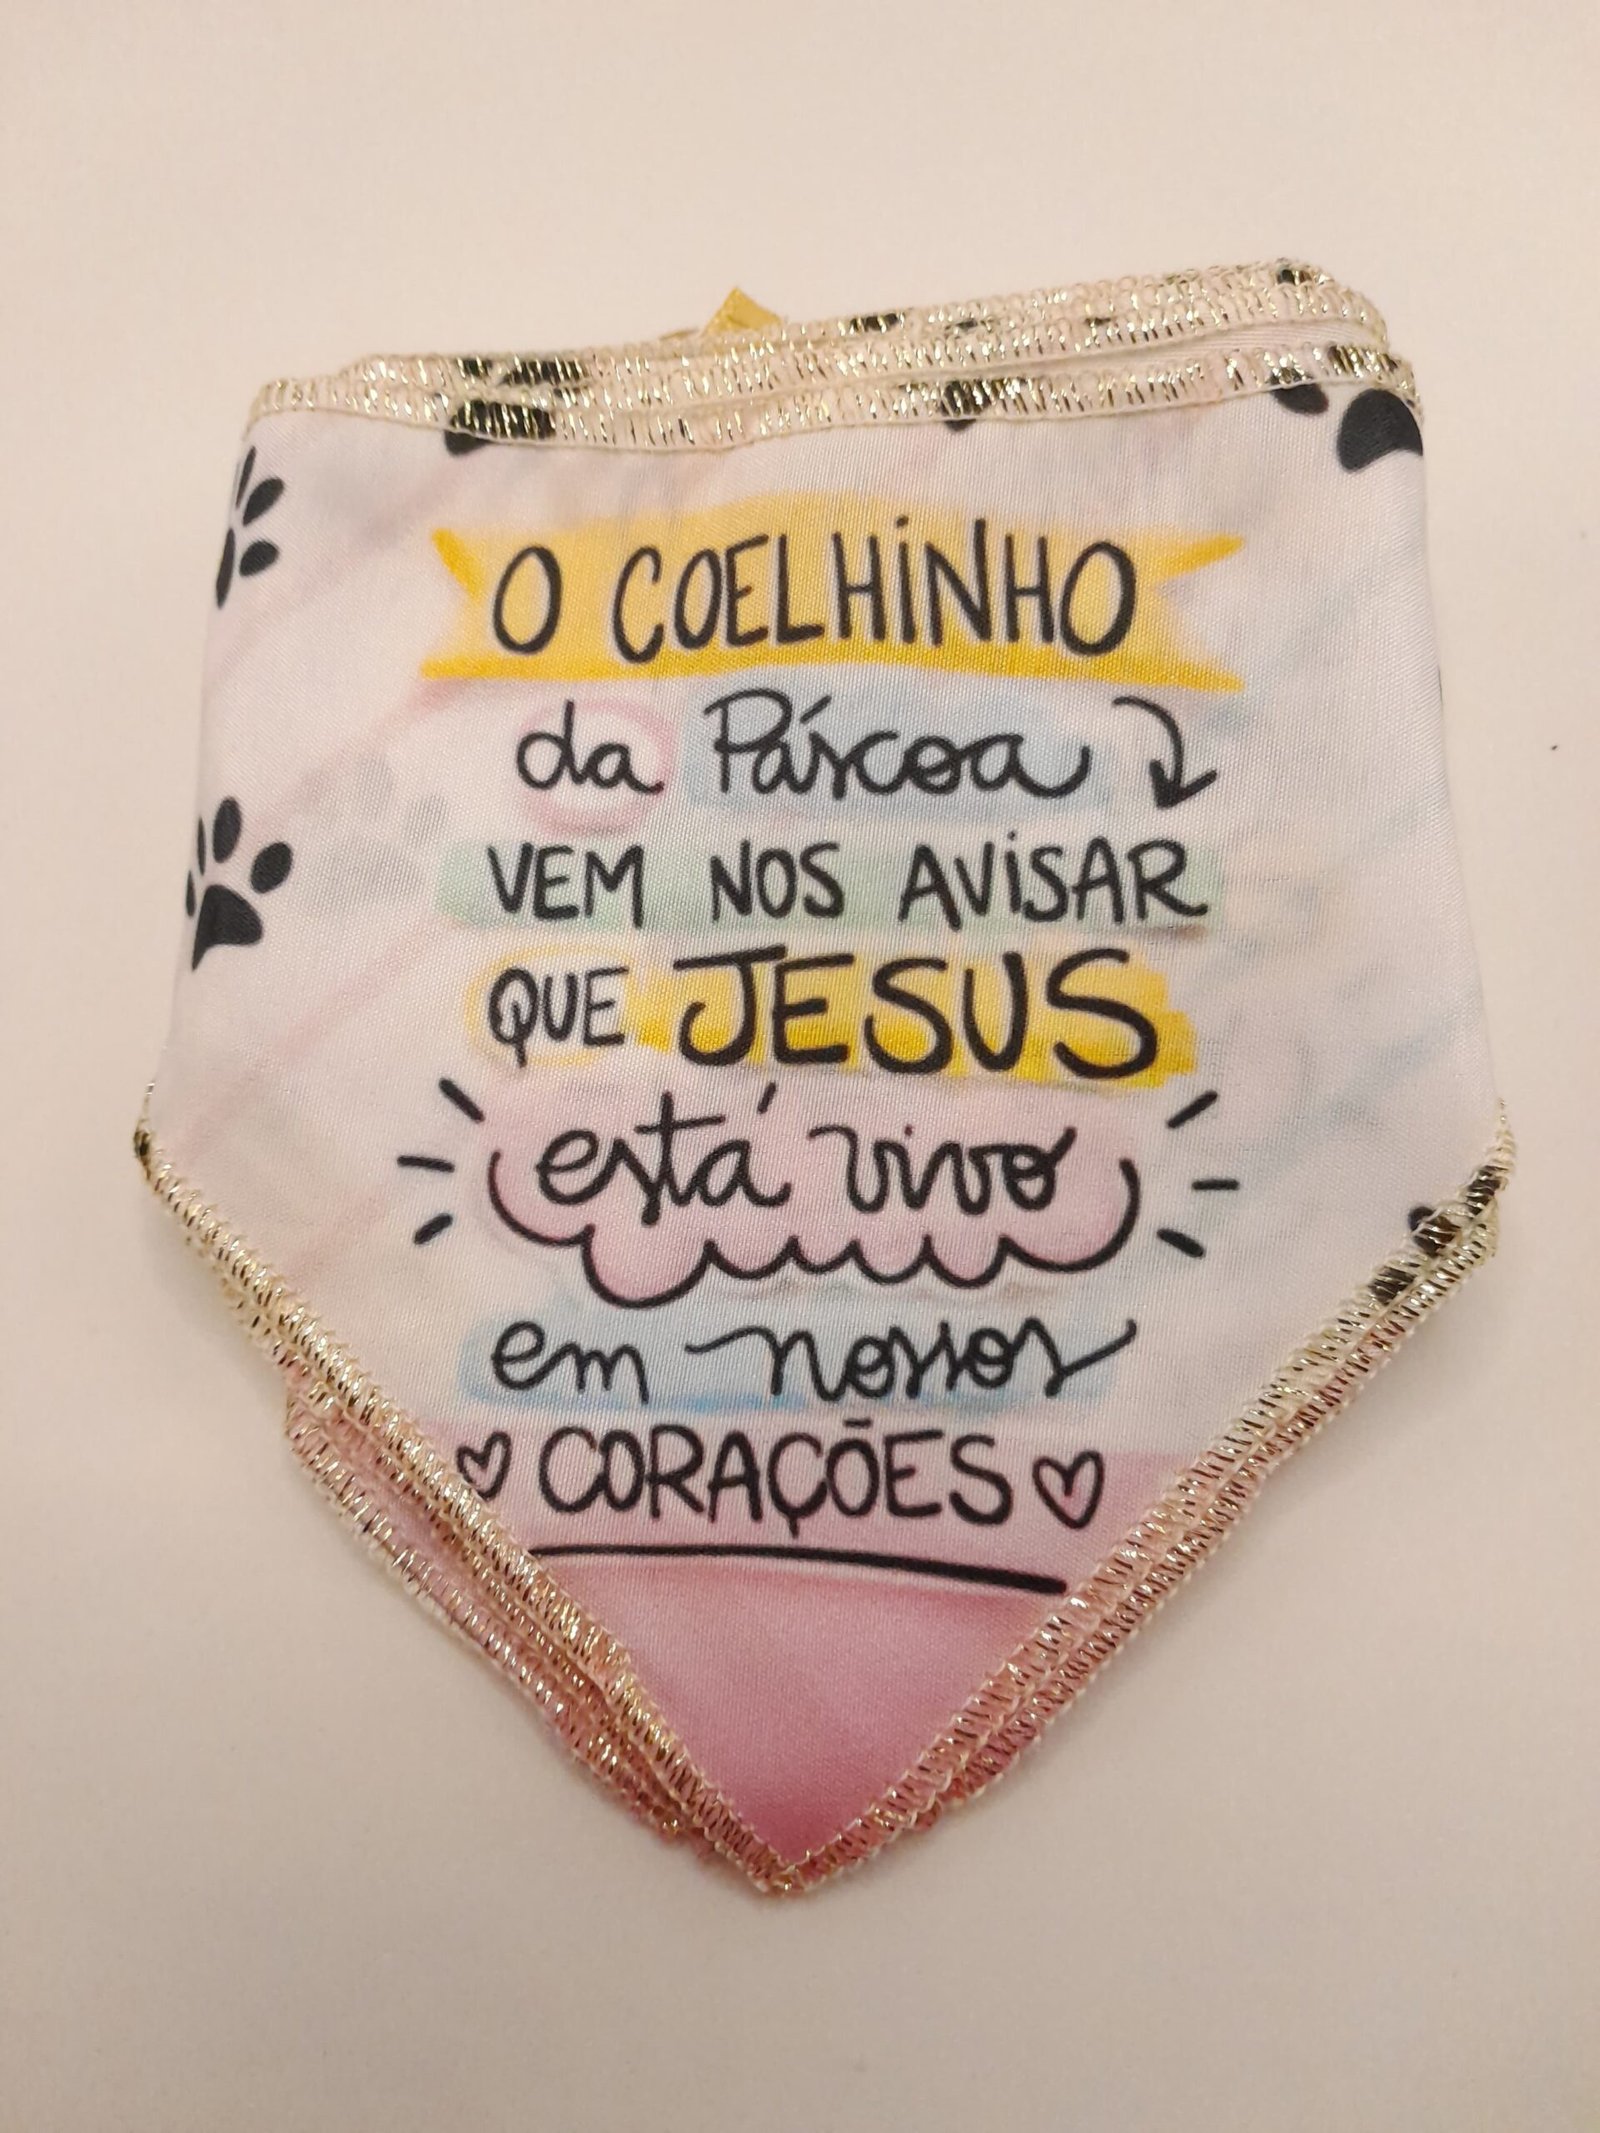 O COELHiNHO
da Páscoa
VEM NOS AViSAR
QUE JESUS
está vivo
em nossos
CORAÇÕES